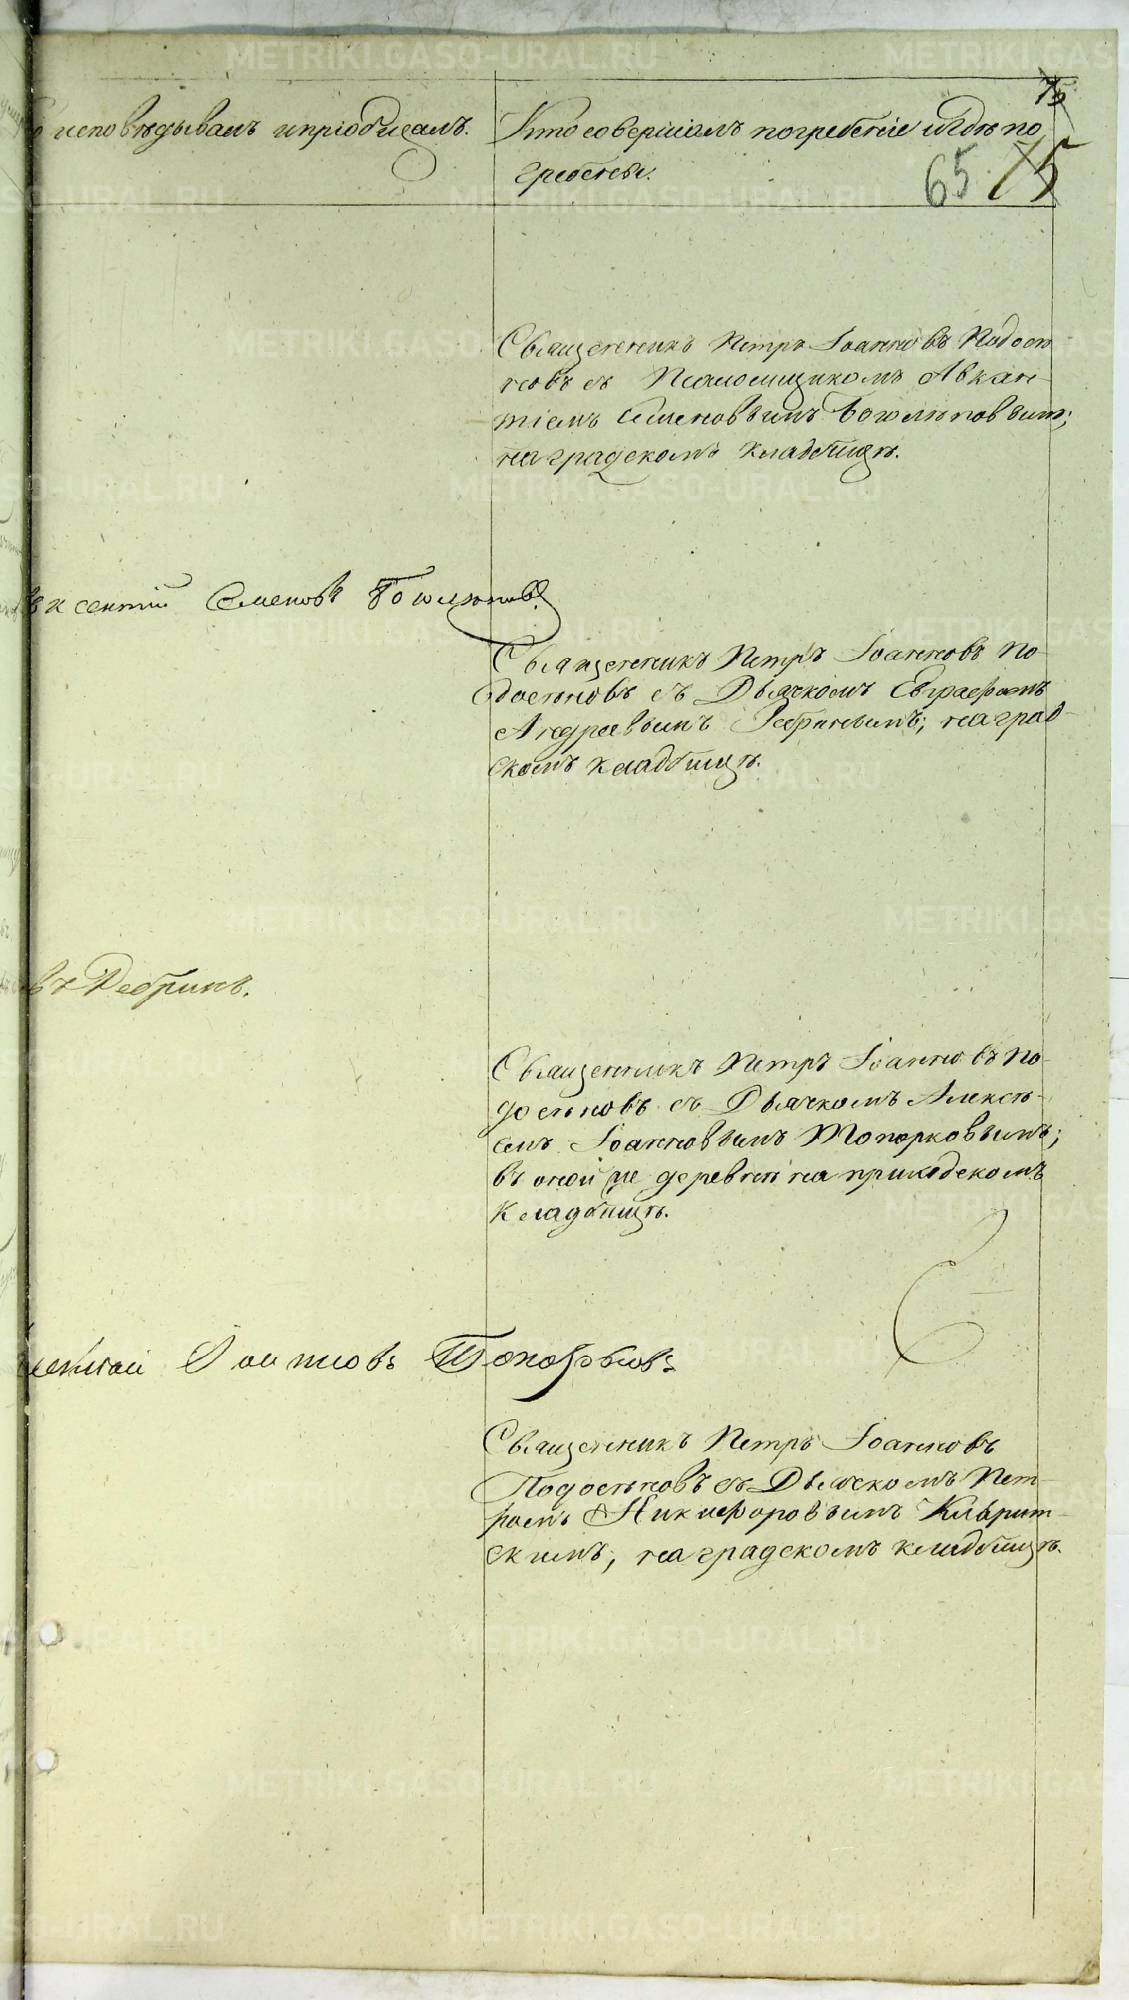 75
исповѣдывалъ и пріобщалъ.
Кто совершалъ погребеніе и гдѣ по
гребены.
65 75
Священникъ Петръ Іоанновъ Подосѣ
новъ съ Псаломщикомъ Авксен-
тіемъ Семеновымъ Боголѣповымъ;
на градскомъ кладбищѣ.
вксентій Семеновъ Боголѣповъ.
Священникъ Петръ Іоанновъ По-
досѣновъ съ Дьячкомъ Евграфомъ
Андреевымъ Ребринымъ; на град-
скомъ кладбищѣ.
въ Ребринъ.
Священникъ Петръ Іоанновъ По-
досѣновъ съ Дьячкомъ Алексѣ-
емъ Іоанновымъ Топорковымъ;
въ оной же деревнѣ на приходскомъ
кладбищѣ.
Іоанновъ Топорковъ
Священникъ Петръ Іоанновъ
Подосѣновъ съ Дьячкомъ Пет-
ромъ Никифоровымъ
скимъ; на градскомъ кладбищѣ.
METRIKI.GASO-URAL.RU